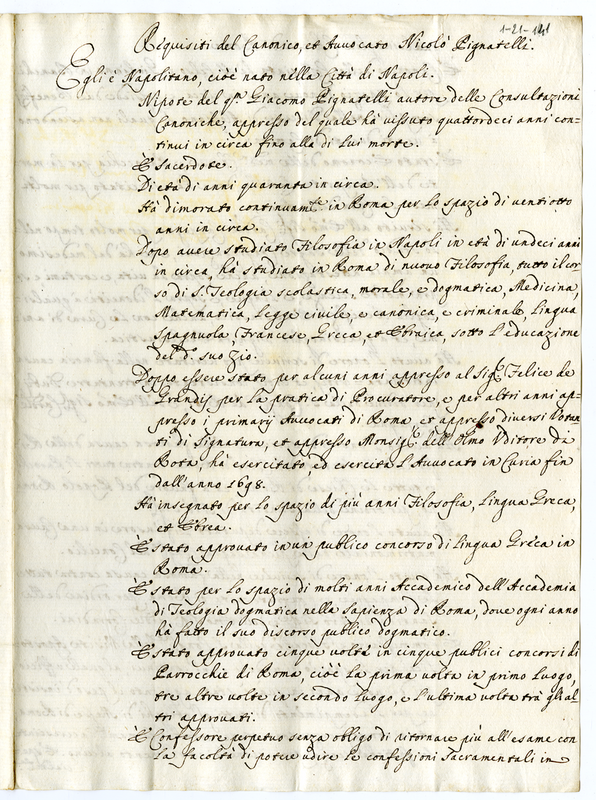 1-21-141
Requisiti del Canonico, et Avvocato Nicolò Pignatelli.
Egli è Napolitano, cioè nato nella Città di Napoli.
Nipote del qm Giacomo Pignatelli autore delle Consultazioni
Canoniche, appresso del quale hà vissuto quattordeci anni con-
tinui in circa fino alla di lui morte.
È Sacerdote.
Di età di anni quaranta in circa.
Hà dimorato continuam.te in Roma per lo spazio di ventiotto
anni in circa.
Dopo avere studiato Filosofia in Napoli in età di undeci anni
in circa, hà studiato in Roma di nuovo Filosofia, tutto il cor-
so di S. Teologia scolastica, morale, e dogmatica, Medicina,
Matematica, Legge civile, e canonica, e criminale, Lingua
Spagnuola, Francese, Greca, et Ebraica, sotto l'educazione
del d.o suo zio.
Doppo essere stato per alcuni anni appresso al Sig.r Felice de
Grandis per la pratica di Procuratore, e per altri anni ap-
presso i primarij Avvocati di Roma, et appresso diversi Votan-
ti di Signatura, et appresso Monsig.r dell'Olmo Uditore di
Rota, hà esercitato ed esercita l'Avvocato in Curia fin
dall'anno 1698.
Hà insegnato per lo spazio di più anni Filosofia, Lingua Greca,
et Ebrea.
È stato approvato in un publico concorso di Lingua Greca in
Roma.
È stato per lo spazio di molti anni Accademico dell'Accademia
di Teologia dogmatica nella Sapienza di Roma, dove ogni anno
hà fatto il suo discorso publico dogmatico.
È stato approvato cinque volte in cinque publici concorsi di
Parrocchie di Roma, cioè la prima volta in primo luogo,
tre altre volte in secondo luogo, e l'ultima volta trà gli al-
tri approvati.
È Confessore perpetuo senza obligo di ritornare più all'esame con
la facoltà di potere udire le confessioni Sacramentali in